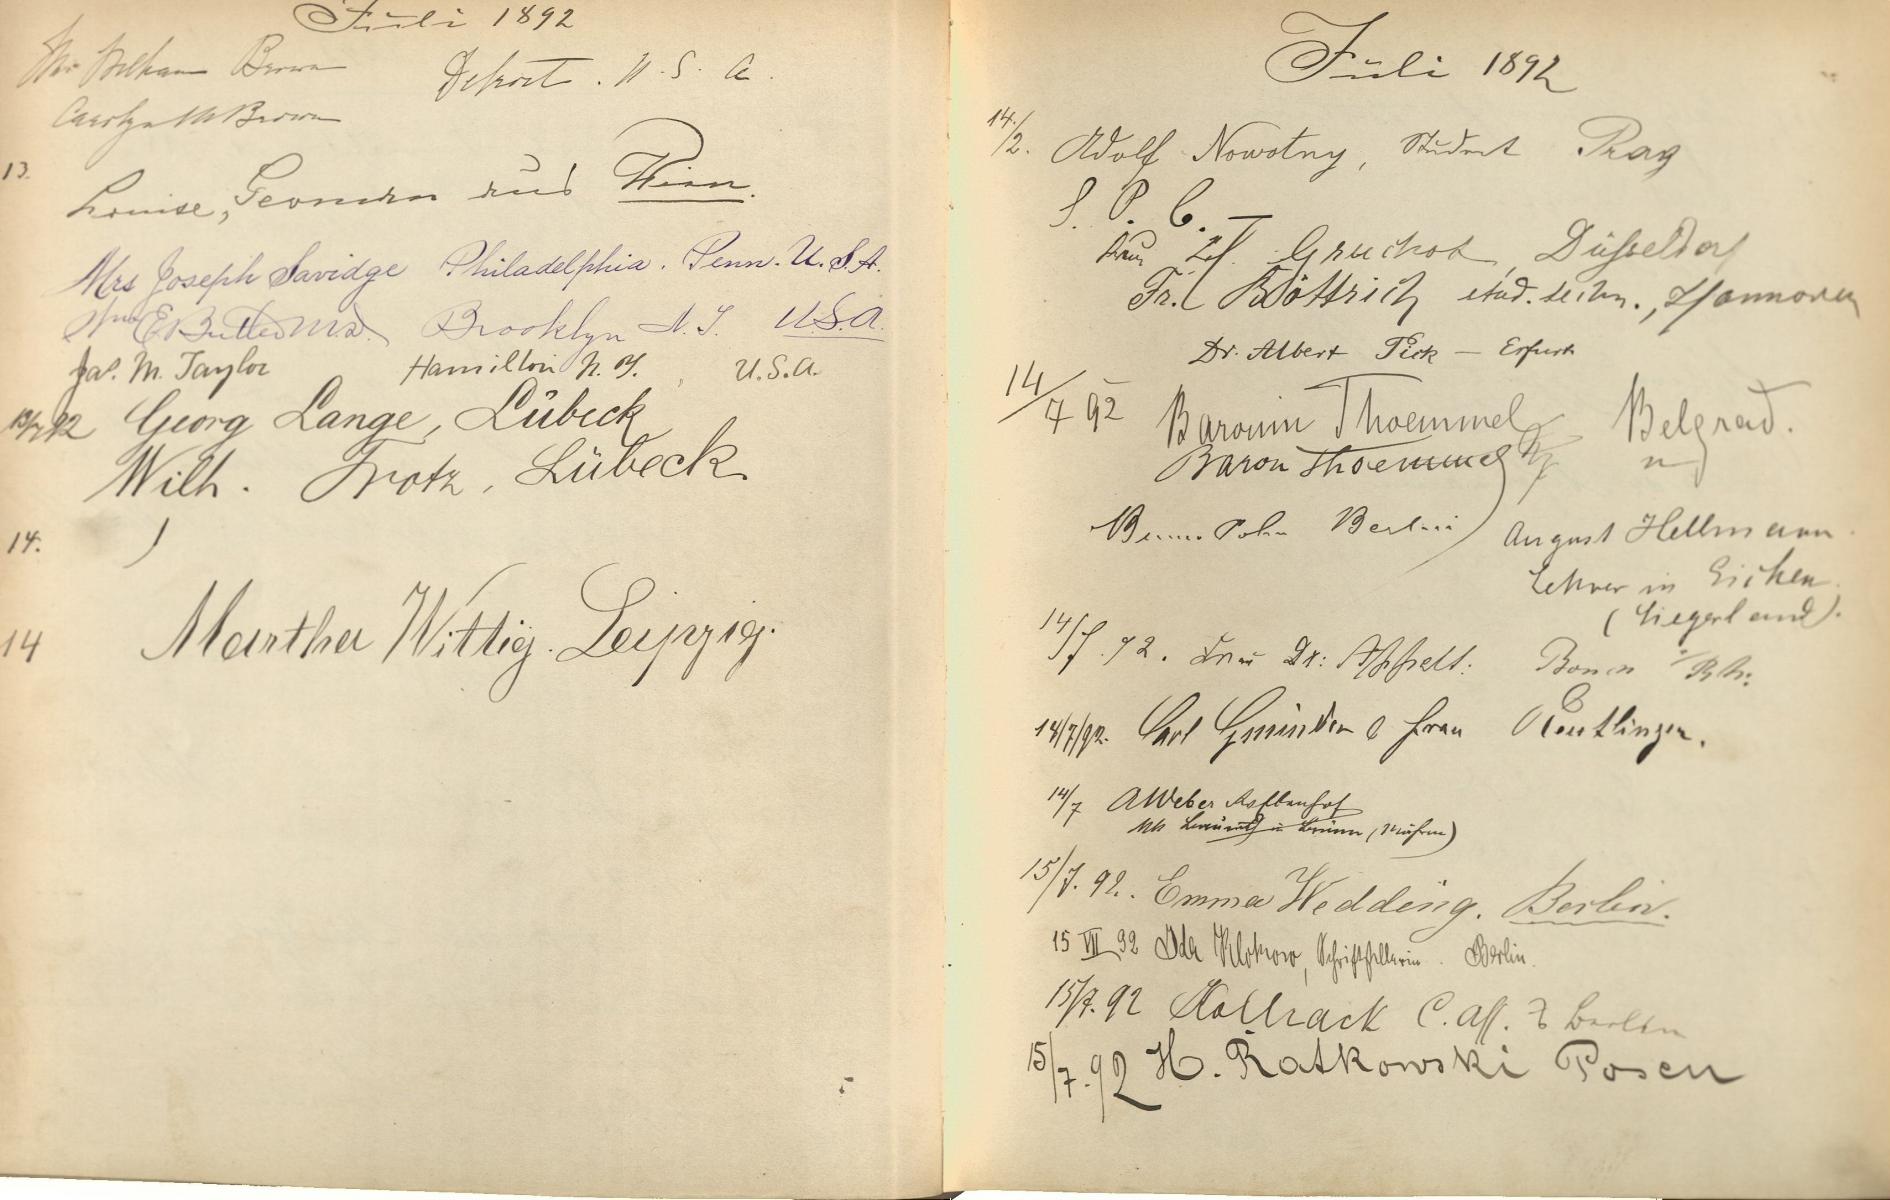 Juli 1892
Brown
Detroit. U. S. A.
Carolyn M Brown
13.
Louise, aus Wien.
Mrs Joseph Savidge Philadelphia. Penn. U. S. A.
E. Butler M.D. Brooklyn N.Y. U.S.A.
Jas. M. Taylor Hamilton N. Y., U.S.A.
13/7 92 Georg Lange, Lübeck
Wilh. Trotz, Lübeck
14.
14 Martha Wittig. Leipzig.
Juli 1892
14./2. Adolf Nowotny, Student Prag
S. P. C.
Gruchot, Düsseldorf
Fr. Böttrich stud. techn., Hannover
Dr. Albert Pick — Erfurt
14/7 92 Baronin Thoemmel Belgrad.
Baron Thoemmel
Berlin
August Hellmann
Lehrer in Eichen
(Siegerland).
14/7. 92. Frau Dr: Bonn a/Rh:
14/7/92. Carl & Frau Reutlingen.
14/7 A Weber
(Mähren)
15/7. 92. Emma Wedding. Berlin.
15 VII 92 Ida Klokow, Schriftstellerin. Berlin.
15/7. 92 Berlin
15/7. 92 H. Ratkowski Posen